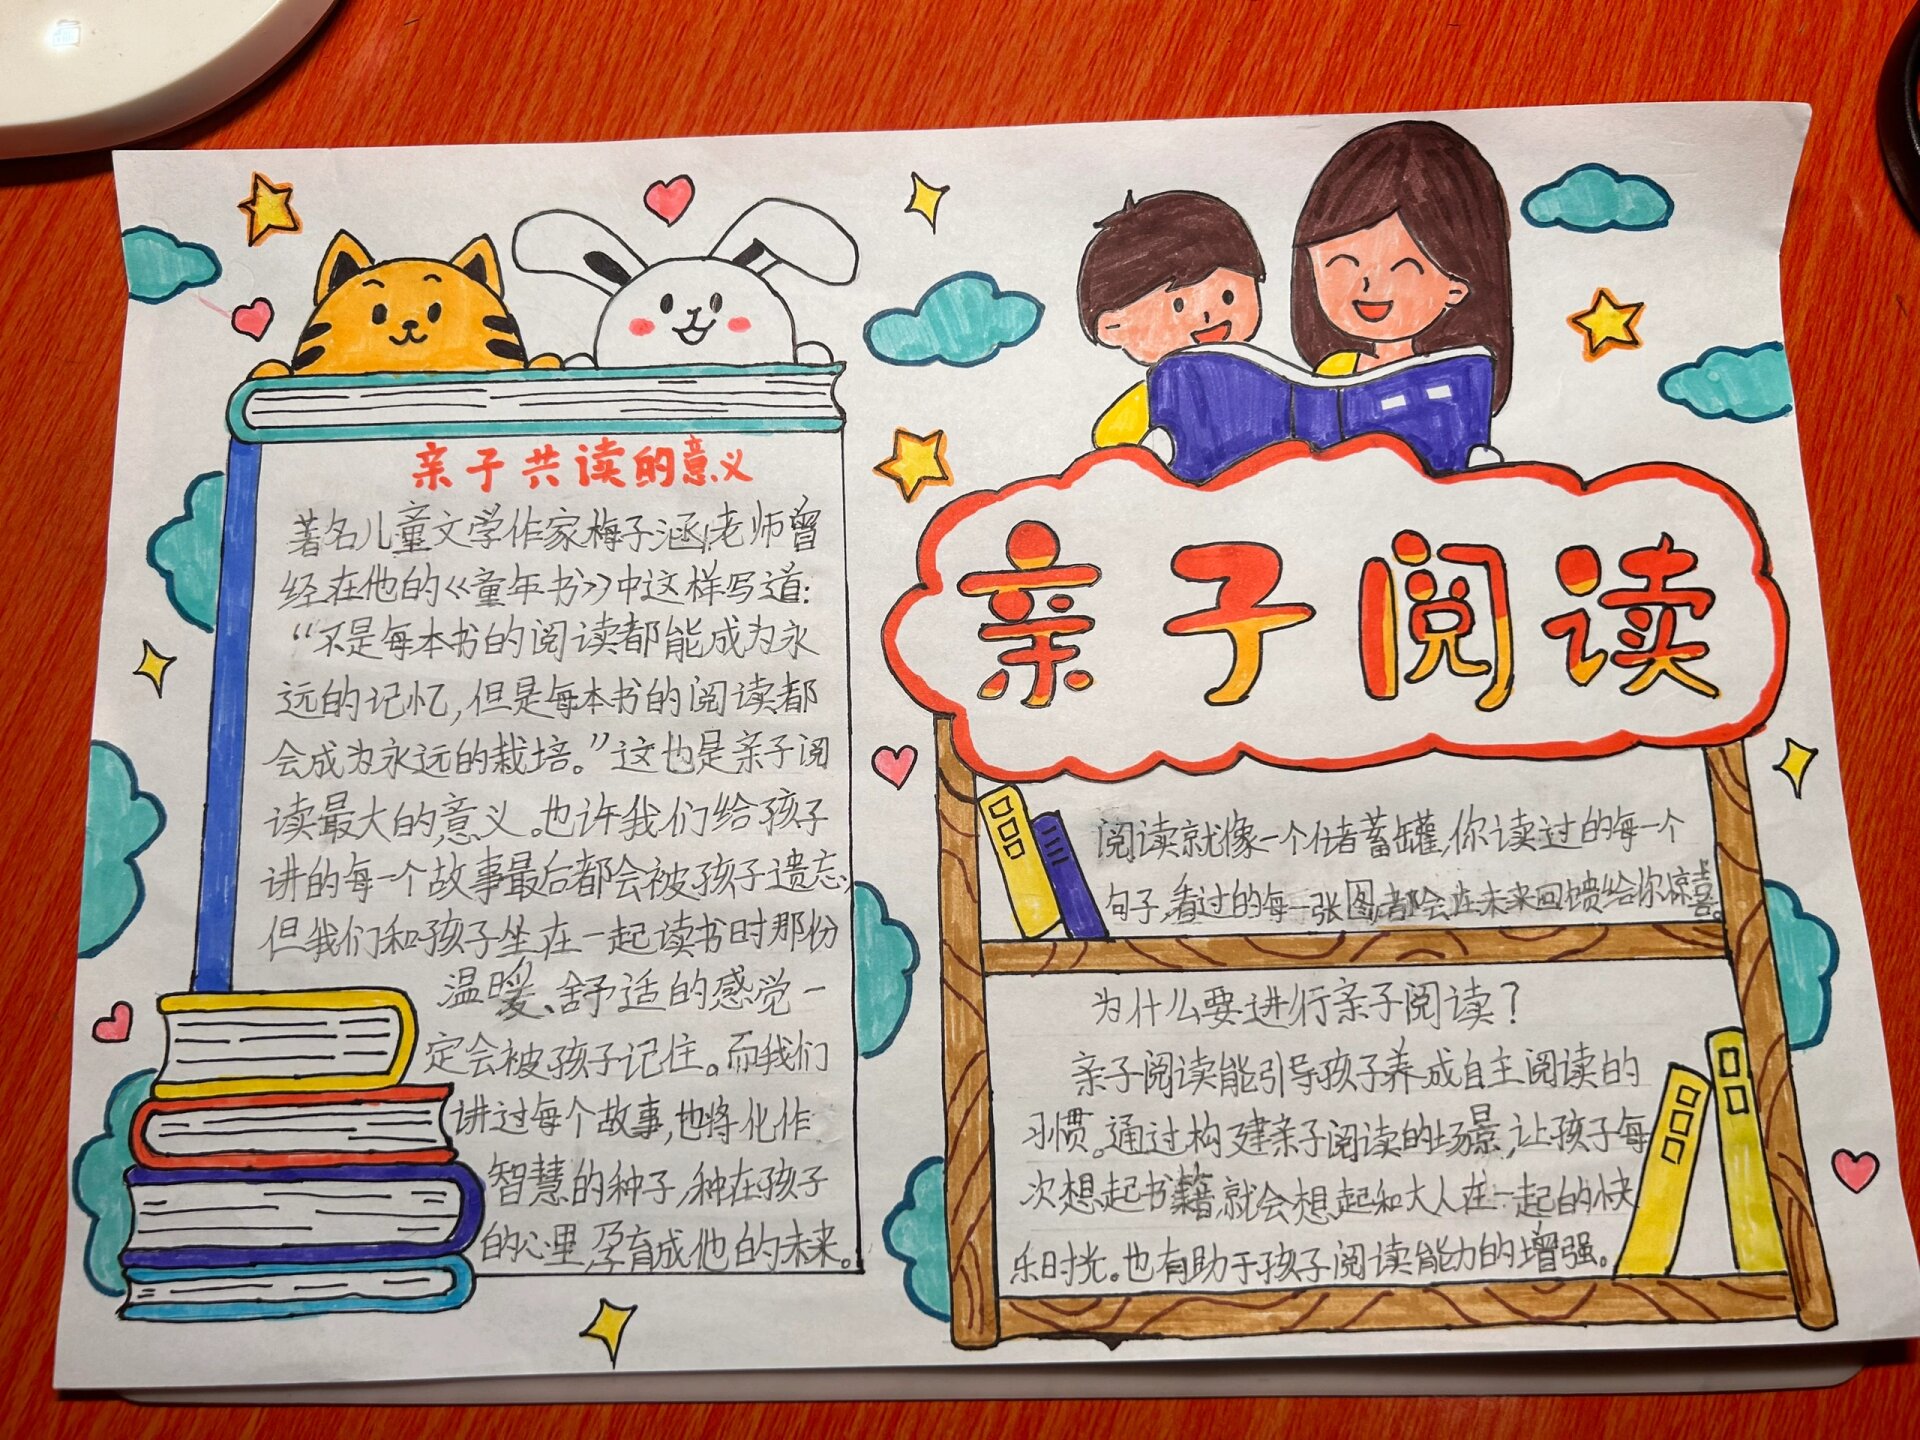 亲子共读的意义
著名儿童文学作家梅子涵老师曾
经在他的《童年书》中这样写道：
“不是每本书的阅读都能成为永
远的记忆，但是每本书的阅读都
会成为永远的栽培。”这也是亲子阅
读最大的意义。也许我们给孩子
讲的每一个故事最后都会被孩子遗忘，
但我们和孩子坐在一起读书时那份
温暖、舒适的感觉一
定会被孩子记住。而我们
讲过每个故事，也将化作
智慧的种子，种在孩子
的心里，孕育成他的未来。
亲子阅读
阅读就像一个储蓄罐，你读过的每一个
句子，看过的每一张图，都会在未来回馈给你惊喜。
为什么要进行亲子阅读？
亲子阅读能引导孩子养成自主阅读的
习惯。通过构建亲子阅读的场景，让孩子每
次想起书籍，就会想起和大人在一起的快
乐时光。也有助于孩子阅读能力的增强。